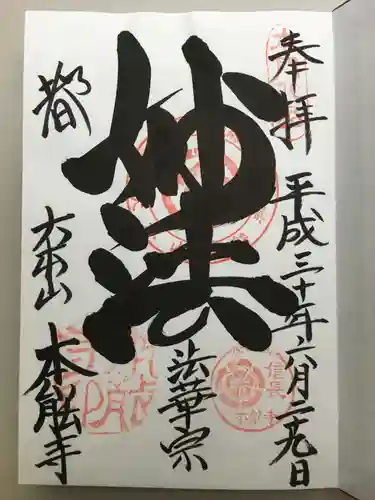 奉拝
平成三十年六月二十九日
妙法
法華宗
都
大本山
本能寺
信長